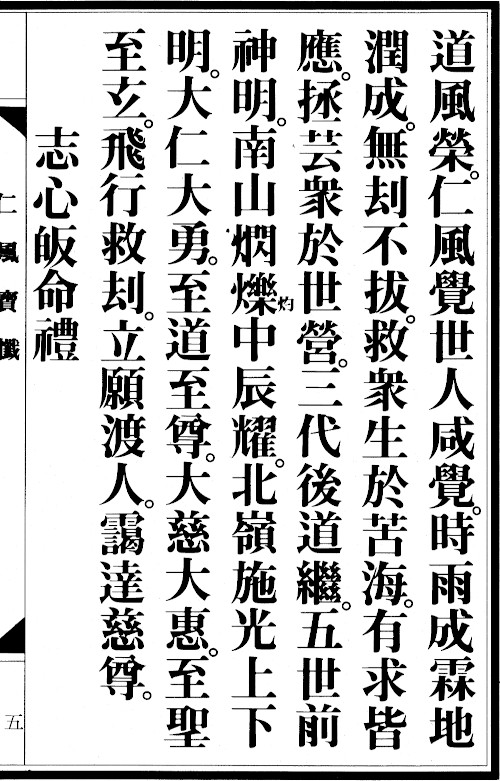 道風榮。仁風覺世人咸覺。時雨成霖地
潤成。無刦不拔。救衆生於苦海。有求皆
應。拯芸衆於世營。三代後道繼。五世前
神明。南山燜爍灼中辰耀。北嶺施光上下
明。大仁大勇。至道至尊。大慈大惠。至聖
至玄。飛行救刦。立願渡人。靄達慈尊。
志心皈命禮
仁風寶懺
五